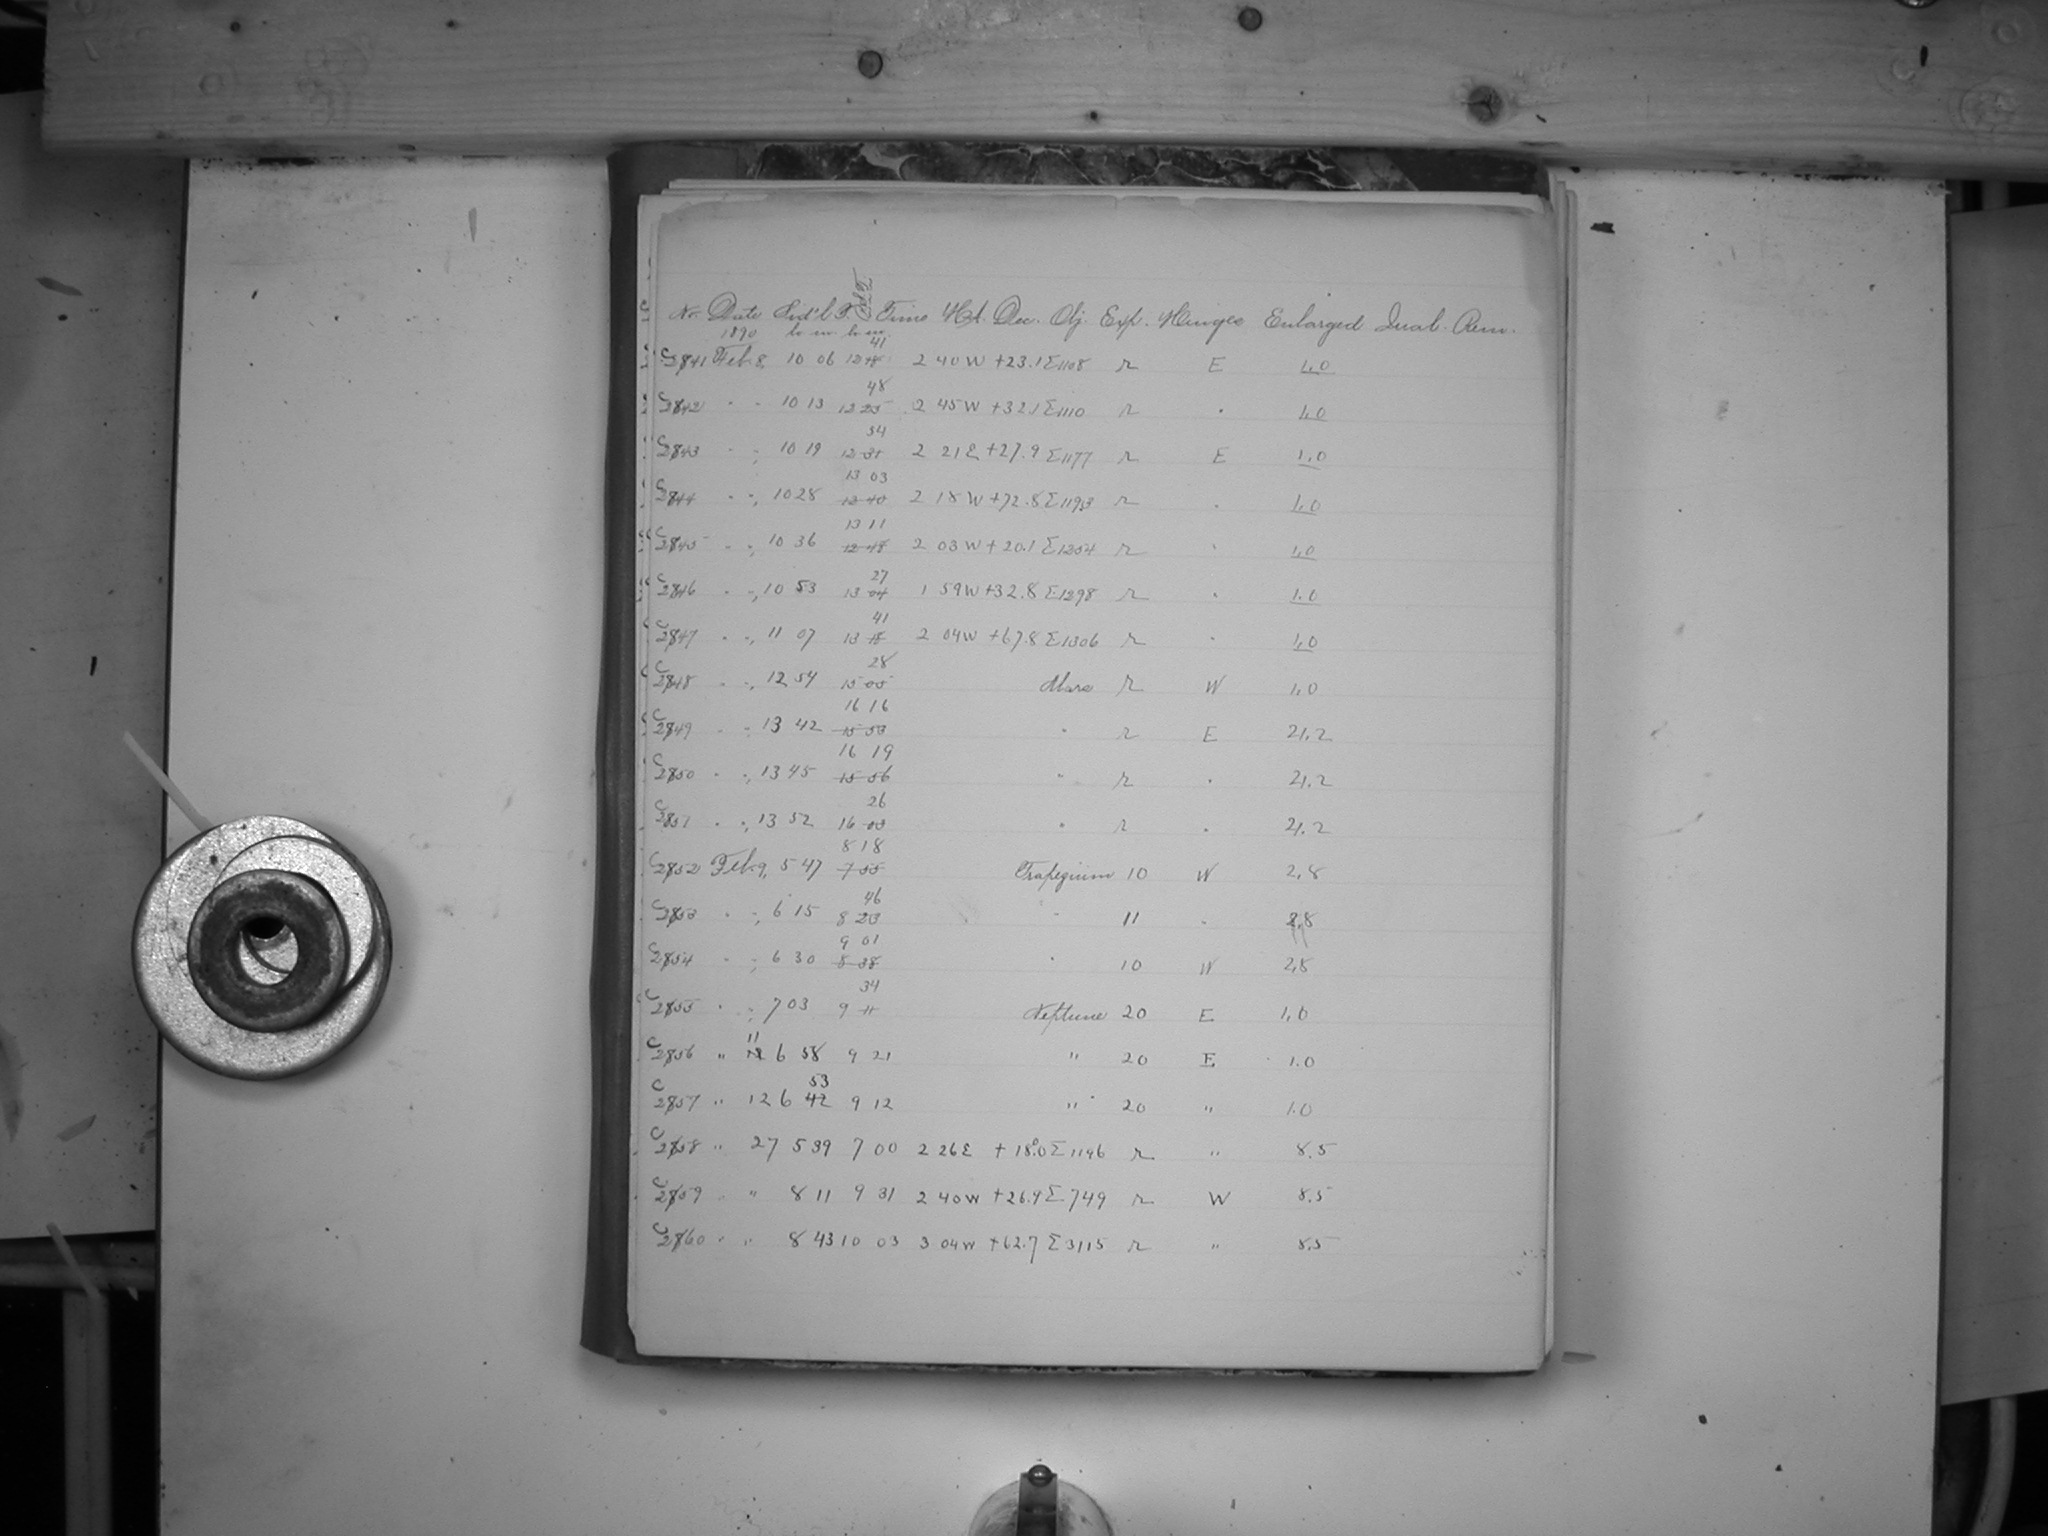 No. Date Sid'l T. Std. T. Time H.A. Dec. Obj. Exp. Hinges Enlarged Qual. Rem.
1890 h m. h m.
41
C2841 Feb. 8, 10 06 12 18 2 40 W +23.1 Σ1108 r E 1.0
48
C2842 " " 10 13 12 25 2 45 W +32.1 Σ1110 r " 1.0
54
C2843 " ", 10 19 12 31 2 21 E +27.9 Σ1177 r E 1.0
13 03
C2844 " ", 10 28 12 40 2 18 W +72.8 Σ1193 r " 1.0
13 11
C2845 " ", 10 36 12 48 2 03 W +20.1 Σ1254 r " 1.0
27
C2846 " ", 10 53 13 04 1 59 W +32.8 Σ1298 r " 1.0
41
C2847 " ", 11 07 13 18 2 04 W +67.8 Σ1306 r " 1.0
28
C2848 " ", 12 54 15 05 Mars r W 1.0
16 16
C2849 " ", 13 42 15 53 " r E 21.2
16 19
C2850 " ", 13 45 15 56 " r " 21.2
26
C2851 " ", 13 52 16 03 " r " 21.2
8 18
C2852 Feb. 9, 5 47 7 55 Trapezium 10 W 2.8
46
C2853 " ", 6 15 8 23 " 11 " 2.8
9 01
C2854 " ", 6 30 8 38 " 10 W 2.8
34
C2855 " ", 7 03 9 11 Neptune 20 E 1.0
11
C2856 " 12 6 58 9 21 " 20 E 1.0
53
C2857 " 12 6 42 9 12 " 20 " 1.0
C2858 " 27 5 39 7 00 2 26 E +18.0 Σ1146 r " 8.5
C2859 " " 8 11 9 31 2 40 W +26.9 Σ749 r W 8.5
C2860 " " 8 43 10 03 3 04 W +62.7 Σ3115 r " 8.5